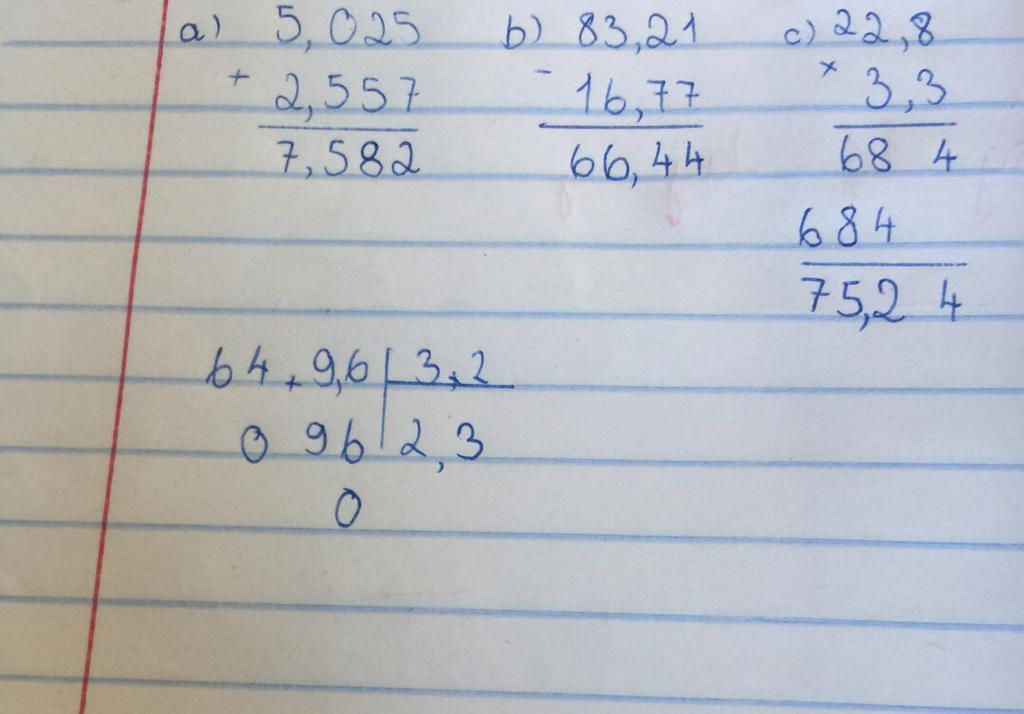 a) 5,025 b) 83,21 c) 22,8
+ 2,557 - 16,77 x 3,3
7,582 66,44 68 4
684
75,2 4
64,9,6 3,2
0 96 2,3
0